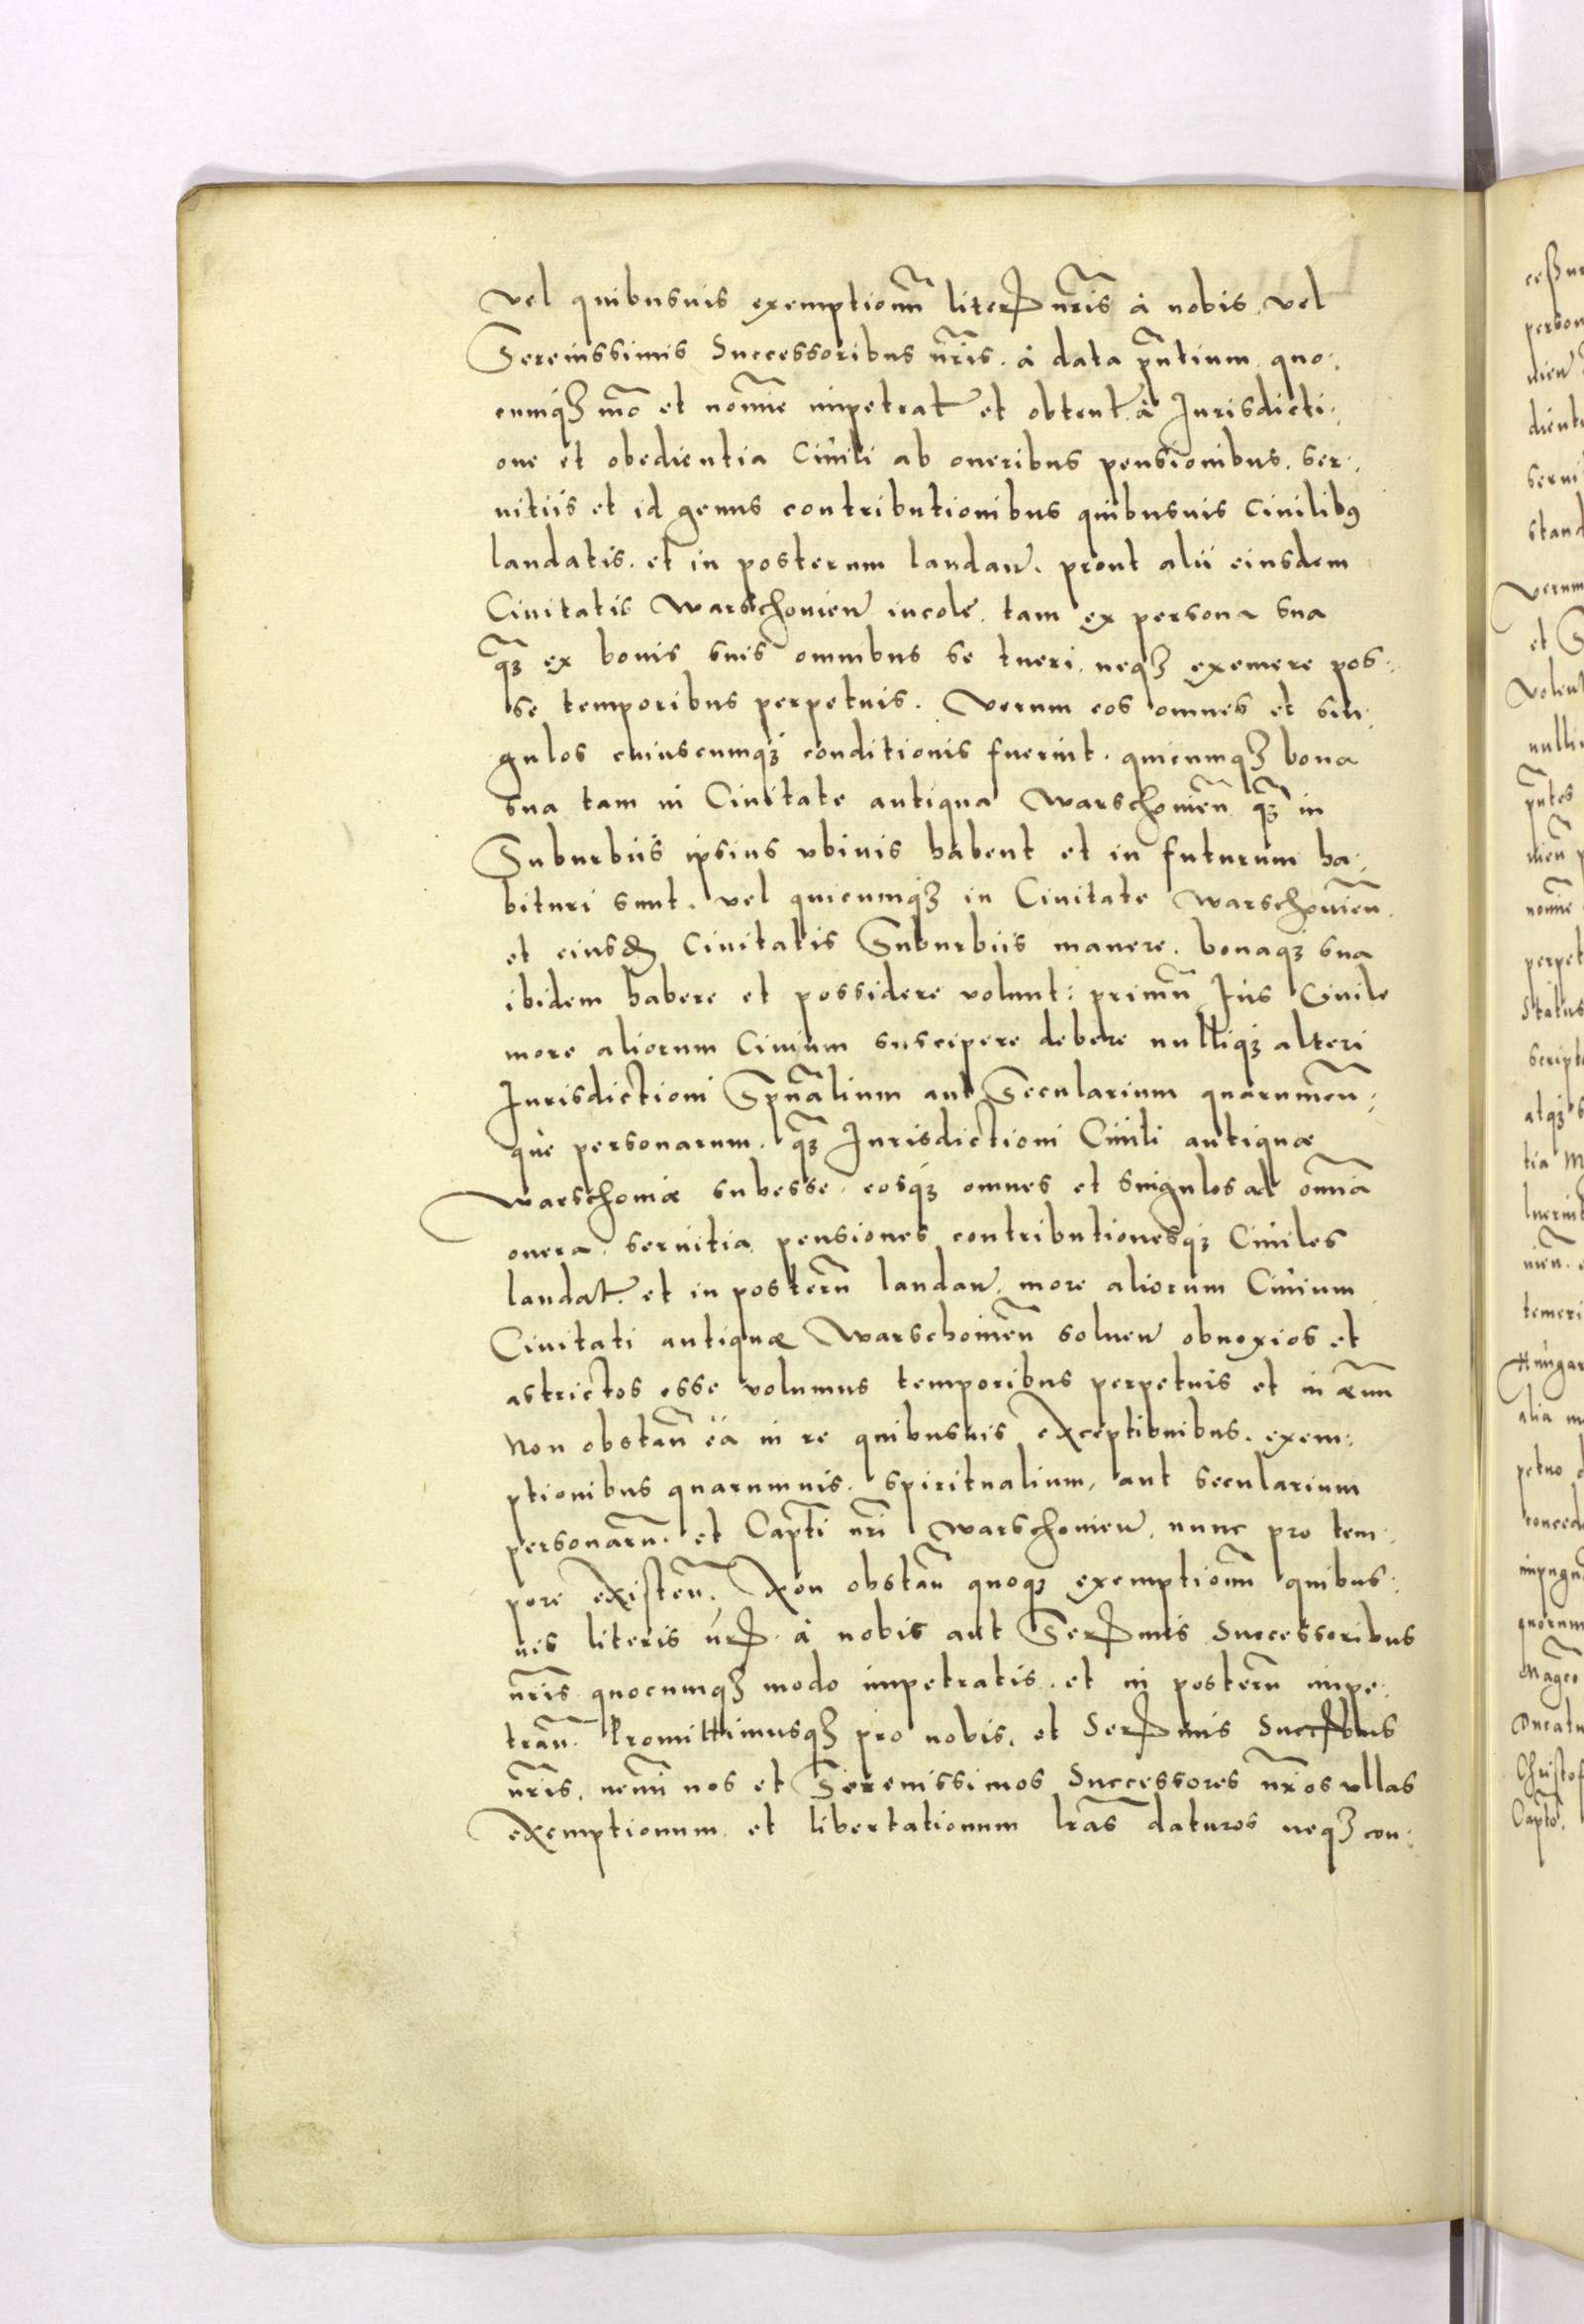 vel quibusuis exemptionũ liter nr̃is à nobis vel
Serenissimis Successoribus nr̃is. à data pñtium quo:
cumqȝ mõ et noĩne impetrat et obtent. à Jurisdicti:
one et obedientia Ciuili ab oneribus pensionibus. ser:
uitiis et id genus contributionibus quibusuis Ciuilibꝰ
laudatis. et in posterum laudan. prout alii eiusdem
Ciuitatis Warschouien incole. tam ex persona sua
qȝ̃ ex bonis suis omnibus se tueri neqȝ exemere pos:
se temporibus perpetuis. Verum eos omnes et sin:
gulos cuiuscumqȝ conditionis fuerint. quicumqȝ bona
sua tam in Ciuitate antiqua Warschouieñ. qȝ̃ in
Suburbiis ipsius vbiuis habent et in futurum ha:
bituri sunt. vel quicumqȝ in Ciuitate Warschouieñ.
et eiusd Ciuitatis Suburbiis manere. bonaqȝ sua
ibidem habere et possidere volunt: primũ Jus Ciuile
more aliorum Ciuium suscipere debere nulliqȝ alteri
Jurisdictioni Spũalium aut Secularium quarumcũ:
que personarum. qȝ̃ Jurisdictioni Ciuili antiquæ
Warschouiæ subesse. eosqȝ omnes et singulos ad om̃ia
onera. seruitia pensiones contributionesqȝ Ciuiles
laudat. et in posterũ laudan. more aliorum Ciuium
Ciuitati antiquæ Warschouieñ soluen obnoxios et
astrictos esse volumus temporibus perpetuis et in æuũ
Non obstañ ẽa in re quibusuis exceptionibus. exem:
ptionibus quarumuis. spiritualium, aut secularium
personarũ. et Capt̃i nr̃i Warschouien. nunc pro tem:
pore existeñ. Non obstañ quoqȝ exemptionũ quibus:
uis literis nr. à nobis aut Sermis Successoribus
nr̃is quocumqȝ modo impetratis. et in posterũ impe:
trañ. Promittimusqȝ pro nobis. et Sermis Succbus
nr̃is, nem̃i nos et Serenissimos Successores nr̃os vllas
exemptionum et libertationum lr̃as daturos neqȝ con: